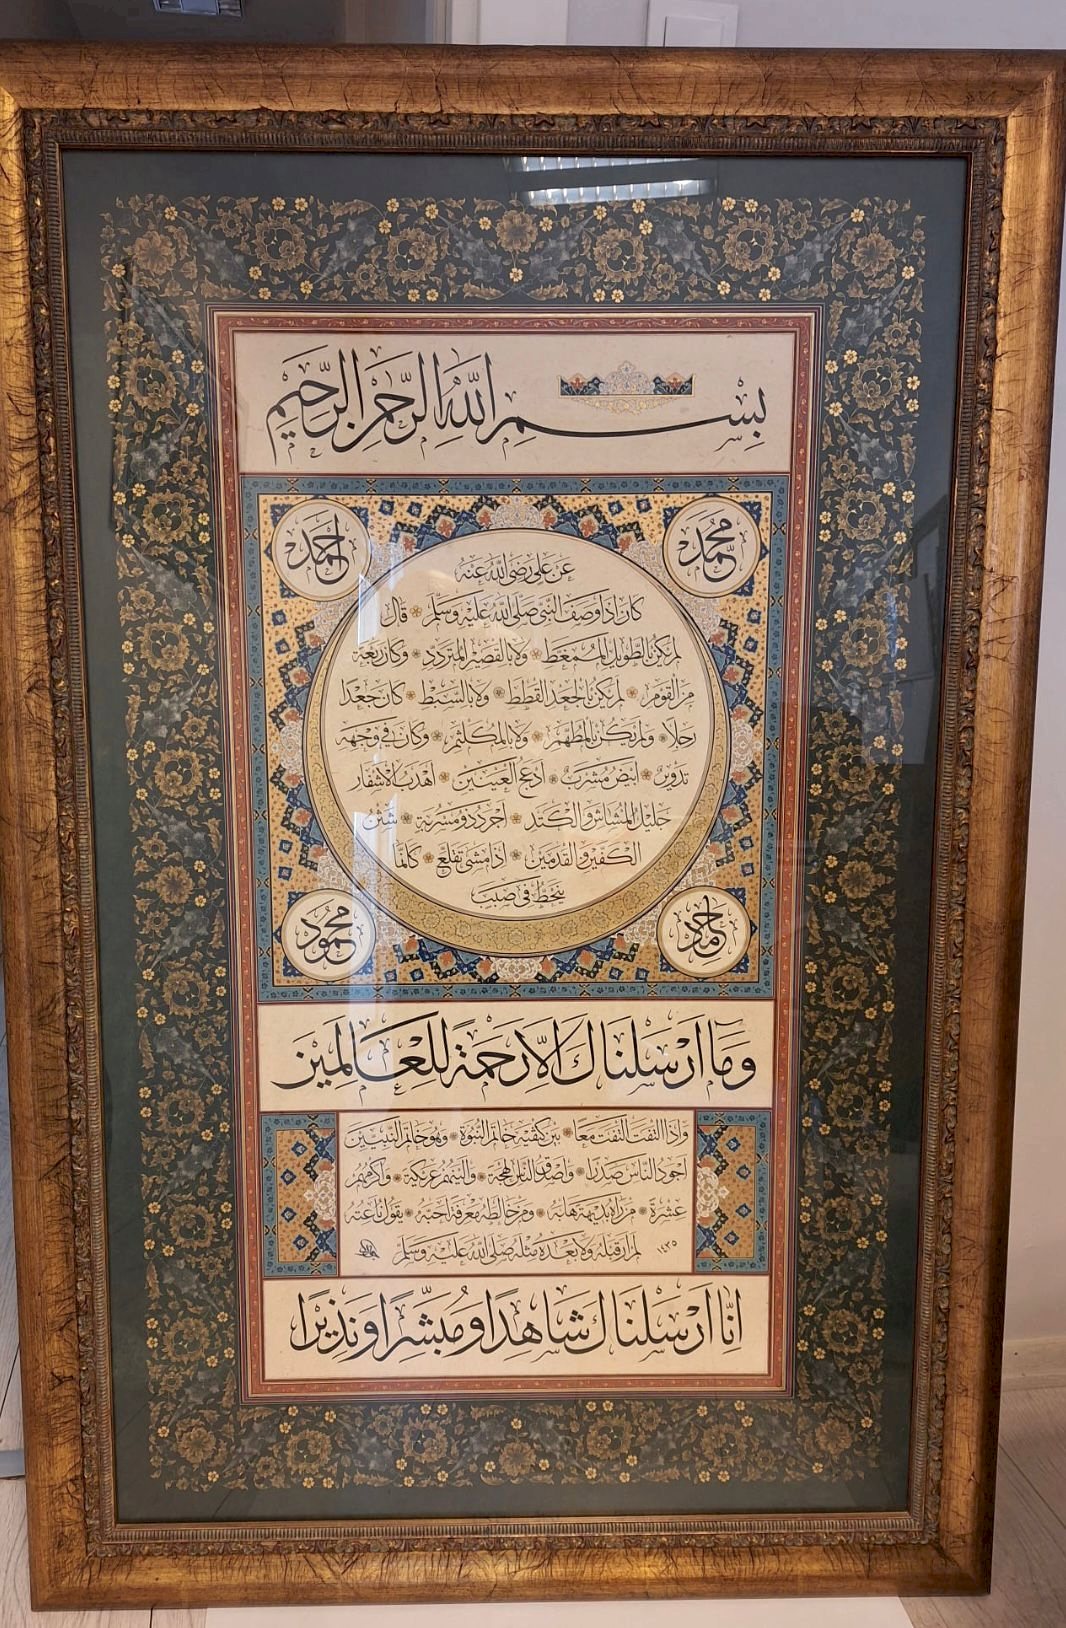 بِسْمِ اللّٰهِ الرَّحْمٰنِ الرَّحِيمِ
مُحَمَّد
أَحْمَد
عَنْ عَلِيٍّ رَضِيَ اللّٰهُ عَنْهُ
كَانَ اِذَا وَصَفَ النَّبِيَّ صَلَّى اللّٰهُ عَلَيْهِ وَسَلَّمَ قَالَ
لَمْ يَكُنْ بِالطَّوِيلِ الْمُمَغَّطِ وَلَا بِالْقَصِيرِ الْمُتَرَدِّدِ وَكَانَ رَبْعَةً
مِنَ الْقَوْمِ لَمْ يَكُنْ بِالْجَعْدِ الْقَطَطِ وَلَا بِالسَّبْطِ كَانَ جَعْدًا
رَجِلًا وَلَمْ يَكُنْ بِالْمُطَهَّمِ وَلَا بِالْمُكَلْثَمِ وَكَانَ فِي وَجْهِهِ
تَدْوِيرٌ اَبْيَضُ مُشْرَبٌ اَدْعَجُ الْعَيْنَيْنِ اَهْدَبُ الْاَشْفَارِ
جَلِيلُ الْمُشَاشِ وَالْكَتَدِ اَجْرَدُ ذُو مَسْرُبَةٍ شَثْنُ
الْكَفَّيْنِ وَالْقَدَمَيْنِ اِذَا مَشَى تَقَلَّعَ كَاَنَّمَا
يَنْحَطُّ فِي صَبَبٍ
حَامِد
مَحْمُود
وَمَا اَرْسَلْنَاكَ اِلَّا رَحْمَةً لِلْعَالَمِينَ
وَاِذَا الْتَفَتَ الْتَفَتَ مَعًا بَيْنَ كَتِفَيْهِ خَاتَمُ النُّبُوَّةِ وَهُوَ خَاتَمُ النَّبِيِّينَ
اَجْوَدُ النَّاسِ صَدْرًا وَاَصْدَقُ النَّاسِ لَهْجَةً وَاَلْيَنُهُمْ عَرِيكَةً وَاَكْرَمُهُمْ
عِشْرَةً مَنْ رَاٰهُ بَدِيهَةً هَابَهُ وَمَنْ خَالَطَهُ مَعْرِفَةً اَحَبَّهُ يَقُولُ نَاعِتُهُ
لَمْ اَرَ قَبْلَهُ وَلَا بَعْدَهُ مِثْلَهُ صَلَّى اللّٰهُ عَلَيْهِ وَسَلَّمَ
١٤٣٥
اِنَّا اَرْسَلْنَاكَ شَاهِدًا وَمُبَشِّرًا وَنَذِيرًا